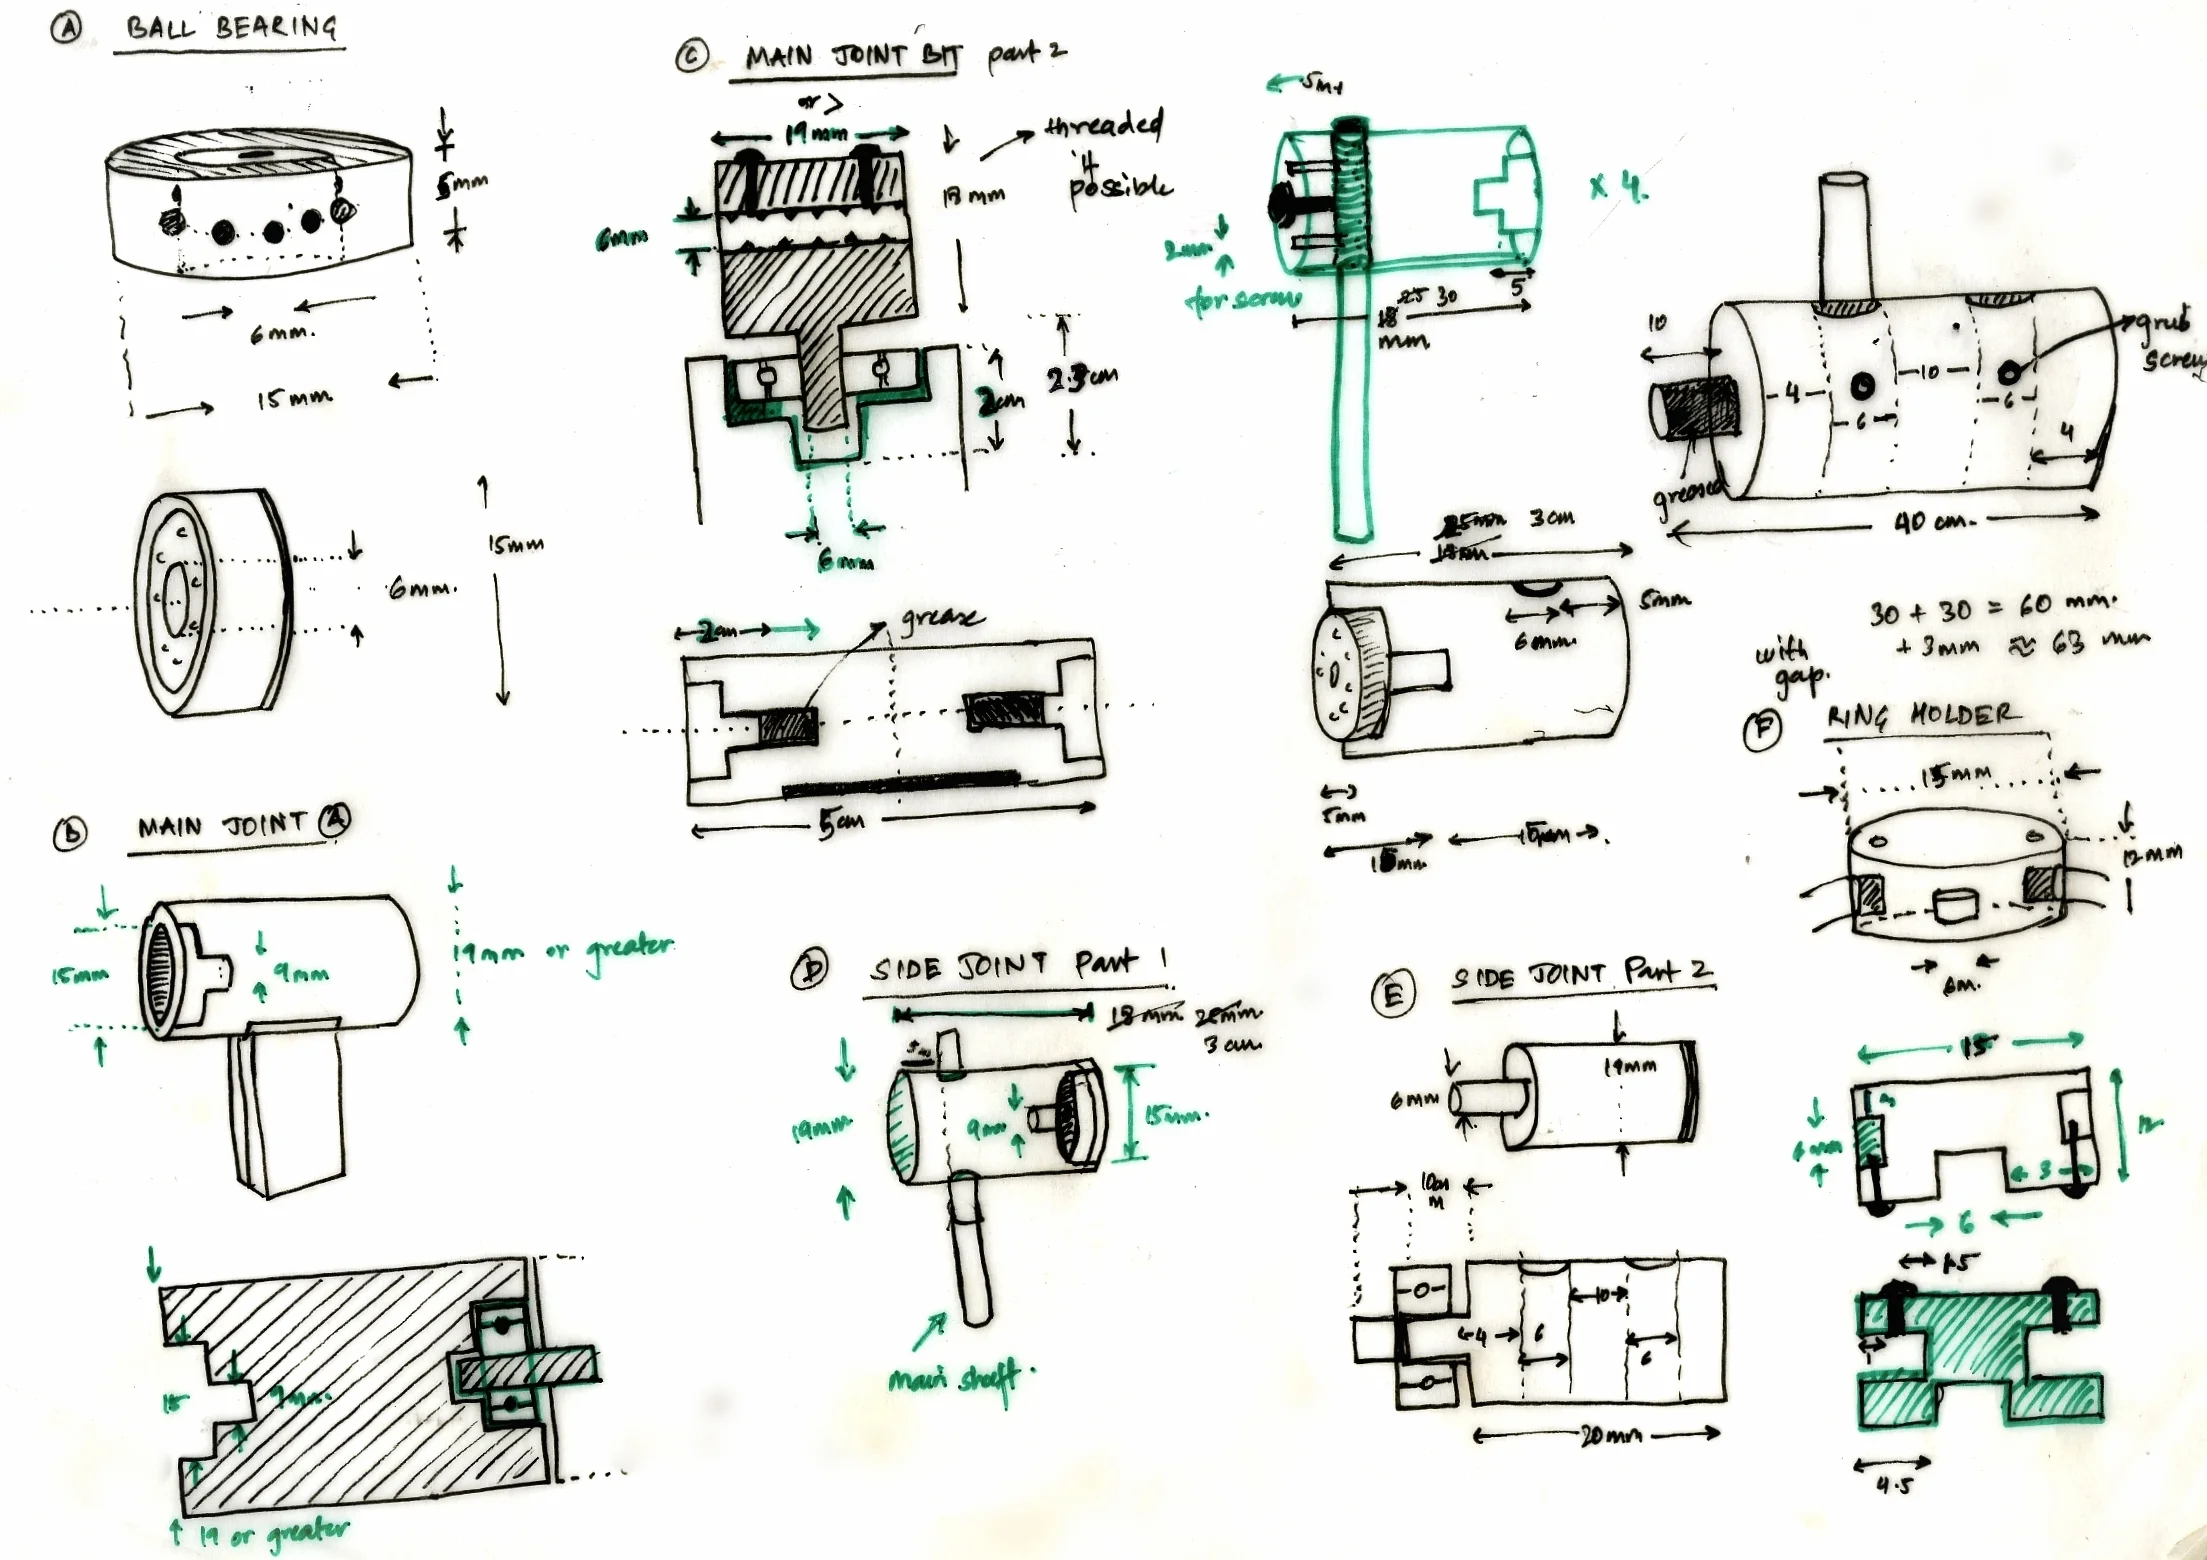 A BALL BEARING
5mm
6mm.
15mm
15mm
6mm.
B MAIN JOINT A
15mm
9mm
19mm or greater
15
9mm.
19 or greater
C MAIN JOINT BIT part 2
or >
19mm
threaded
if
possible
18 mm
6mm
2.3cm
2cm
6mm
2cm
grease
5cm
5mm
x 4.
2mm
for screw
5
25 30
18
mm
25mm 3cm
18mm
5mm
6mm.
5mm
15mm
15mm
10
grub
screw
4
10
6
6
4
greased
40 cm.
30 + 30 = 60 mm.
+ 3mm ≈ 63 mm
with
gap.
D SIDE JOINT Part 1
18mm 25mm
3 cm
19mm
9mm
15mm.
main shaft.
E SIDE JOINT Part 2
6mm
19mm
4
6
10
6
20mm
F RING HOLDER
15mm
12mm
6m.
15
6mm
3
12
6
1.5
1
4.5